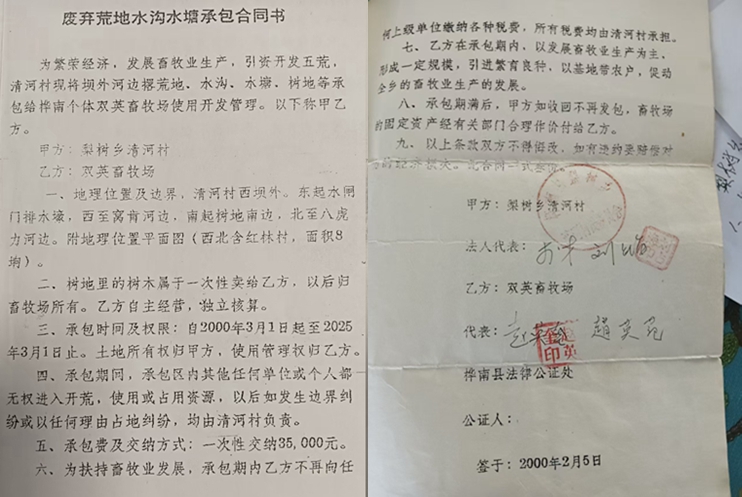 废弃荒地水沟水塘承包合同书
为繁荣经济，发展畜牧业生产，引资开发五荒，
清河村现将坝外河边撂荒地、水沟、水塘、树地等承
包给桦南个体双英畜牧场使用开发管理。以下称甲乙
方。
甲方：梨树乡清河村
乙方：双英畜牧场
一、地理位置及边界，清河村西坝外。东起水闸
门排水壕，西至窝肯河边，南起树地南边，北至八虎
力河边。附地理位置平面图（西北含红林村，面积8
垧）。
二、树地里的树木属于一次性卖给乙方，以后归
畜牧场所有。乙方自主经营，独立核算。
三、承包时间及权限：自2000年3月1日起至2025
年3月1日止。土地所有权归甲方，使用管理权归乙方。
四、承包期间，承包区内其他任何单位或个人都
无权进入开荒，使用或占用资源，以后如发生边界纠
纷或以任何理由占地纠纷，均由清河村负责。
五、承包费及交纳方式：一次性交纳35,000元。
六、为扶持畜牧业发展，承包期内乙方不再向任
何上级单位缴纳各种税费，所有税费均由清河村承担。
七、乙方在承包期内，以发展畜牧业生产为主，
形成一定规模，引进繁育良种，以基地带农户，促动
全乡的畜牧业生产的发展。
八、承包期满后，甲方如收回不再发包，畜牧场
的固定资产经有关部门合理作价付给乙方。
九、以上条款双方不得悔改，如有违约要赔偿对
方的经济损失。此合同一式叁份。
甲方：梨树乡清河村
法人代表：
乙方：双英畜牧场
代表：
桦南县法律公证处
公证人：
签于：2000年2月5日